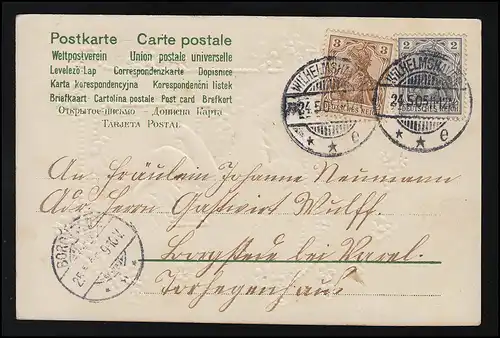 Postkarte Carte postale
Weltpostverein Union postale universelle
Levelező-Lap Correspondenzkarte Dopisnice
Karta korespondencyjna Korespondenční lístek
Briefkaart Cartolina postale Post card Brefkort
Открытое письмо Дописна Карта
Tarjeta Postal
3
2
WILHELMSHAVEN
24.5.05
WILHELMSHAVEN
24.5.05
An Fräulein Johanne Neumann
Adr. Herrn Gastwirt Wulff.
Borgstede bei Varel.